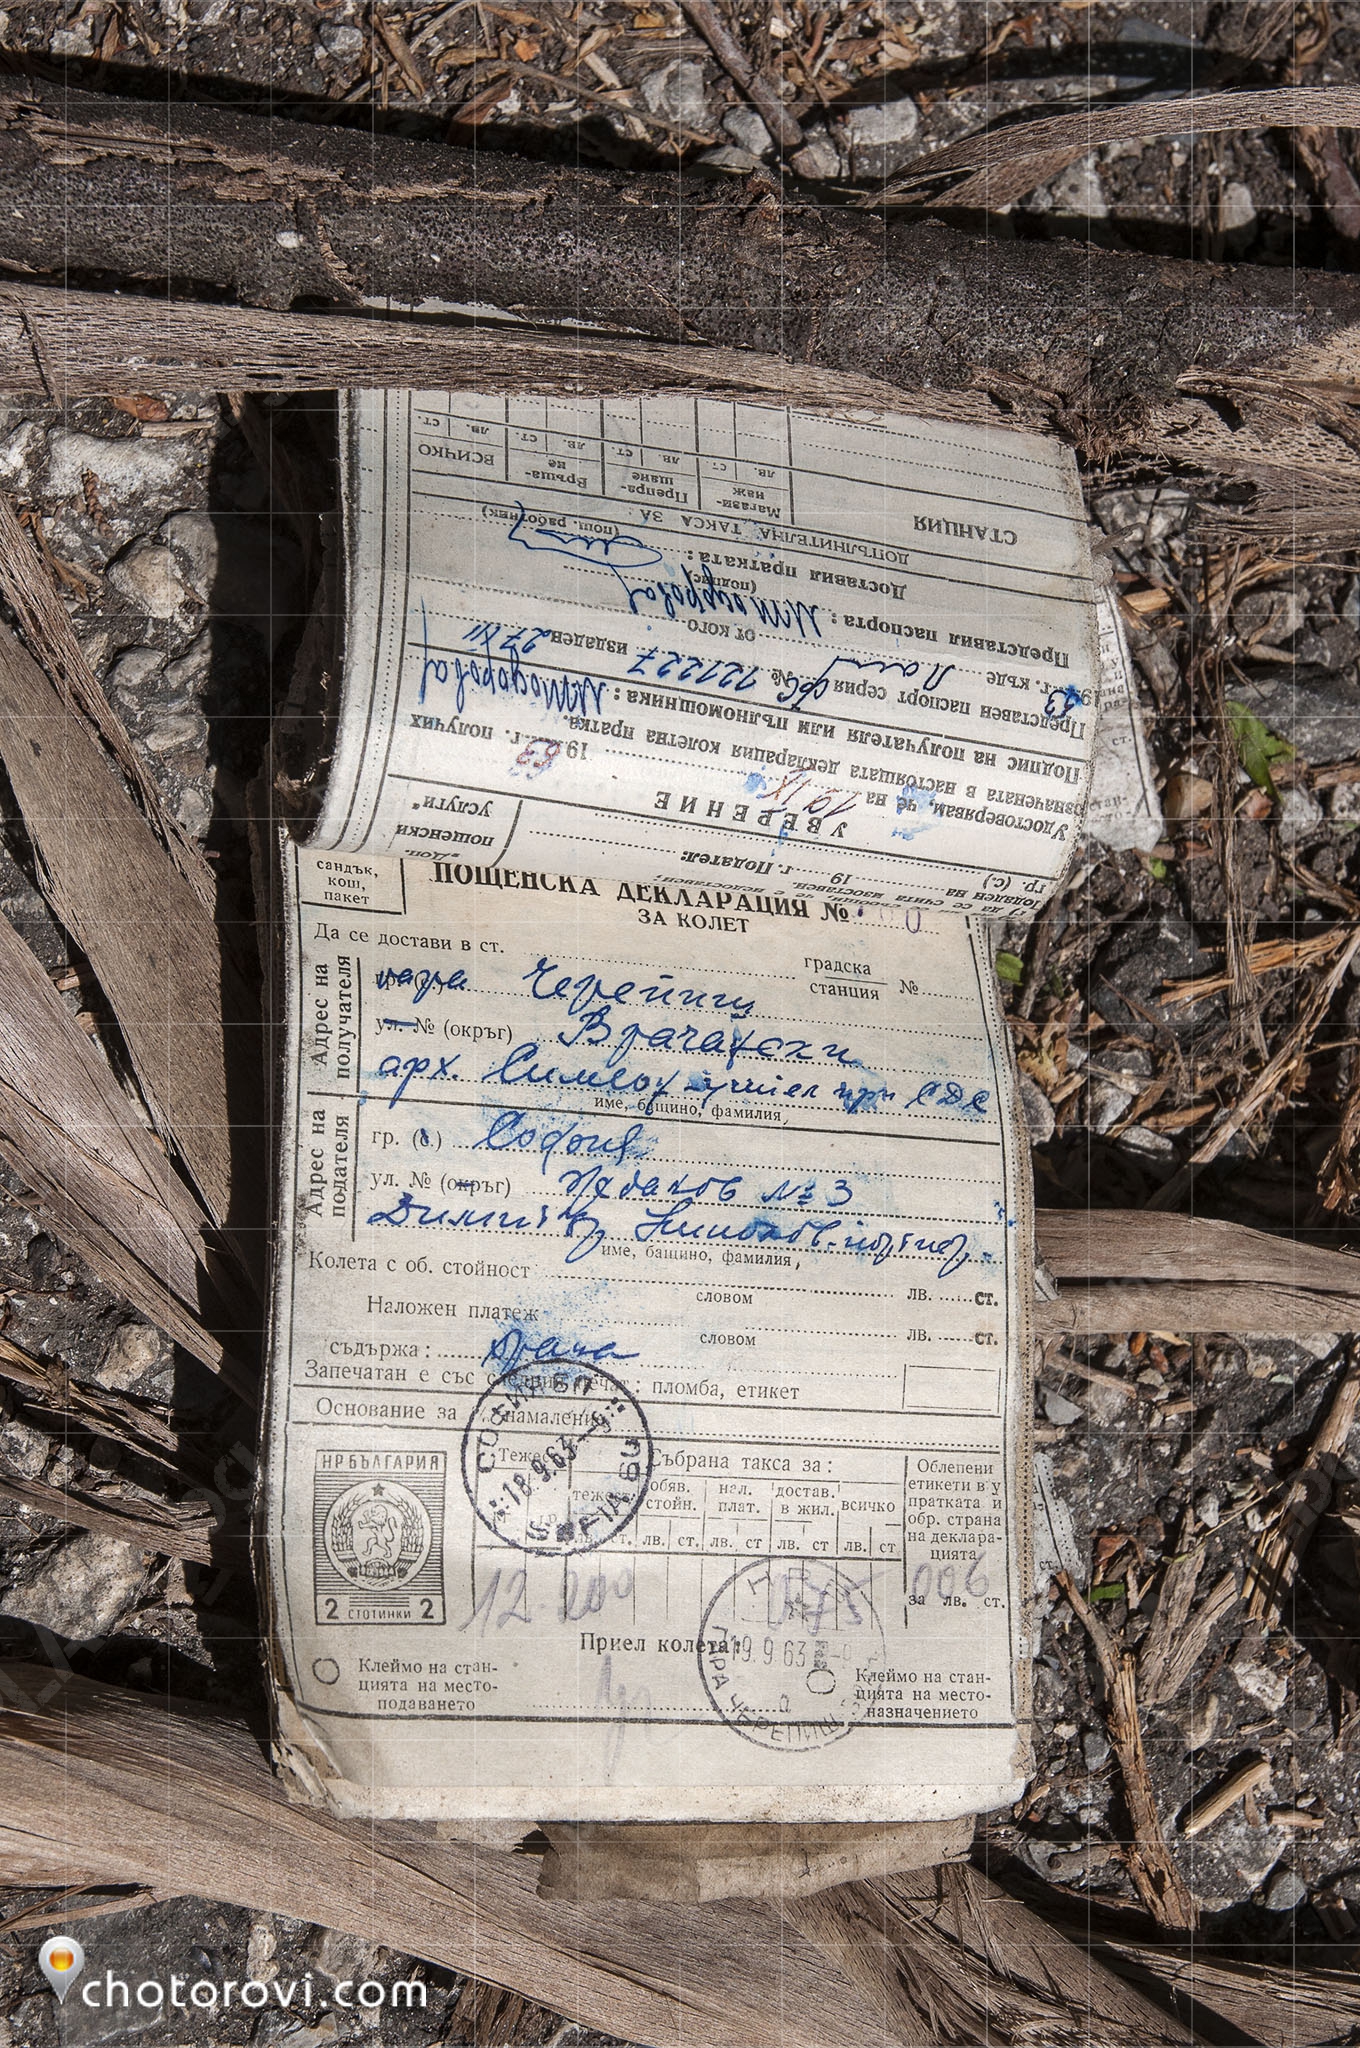 СТАНЦИЯ
Магази-
наж
Препра-
щане
Връща-
не
ВСИЧКО
лв. ст. лв. ст. лв. ст. лв. ст.
ДОПЪЛНИТЕЛНА ТАКСА ЗА:
Доставил пратката:
(пощ. работник)
(подпис)
Представил паспорта:
от кого
1963 г. къде
Представен паспорт серия № 121227 издаден 27 VII
Подпис на получателя или пълномощника:
означената в настоящата декларация колетна пратка.
Удостоверявам, че на 19 IX 1963 г. получих
УВЕРЕНИЕ
„Доп.
пощенски
услуги“
19 г. Подател:
гр. (с)
Подаден на
сандък,
кош,
пакет
ПОЩЕНСКА ДЕКЛАРАЦИЯ №
ЗА КОЛЕТ
Да се достави в ст.
градска
станция №
Адрес на
получателя
гара Черепиш
ул. № (окръг) Врачански
арх. Симеон при СДС
име, бащино, фамилия,
Адрес на
подателя
гр. (с.) София
ул. № (окръг) № 3
Димитър
име, бащино, фамилия,
Колета с об. стойност лв. ст.
словом
Наложен платеж лв. ст.
словом
съдържа: храна
Запечатан е със следния печат: пломба, етикет
Основание за намаление
НР БЪЛГАРИЯ
2 СТОТИНКИ 2
SOFIA
18.9.63
Събрана такса за:
обяв.
стойн.
нал.
плат.
достав.
в жил.
всичко
лв. ст. лв. ст лв. ст лв. ст
Облепени
етикети в у
пратката и
обр. страна
на деклара-
цията
006
за лв. ст.
12 200
Приел колета:
19.9.63
ГАРА ЧЕРЕПИШ
Клеймо на стан-
цията на место-
подаването
Клеймо на стан-
цията на место-
назначението
chotorovi.com